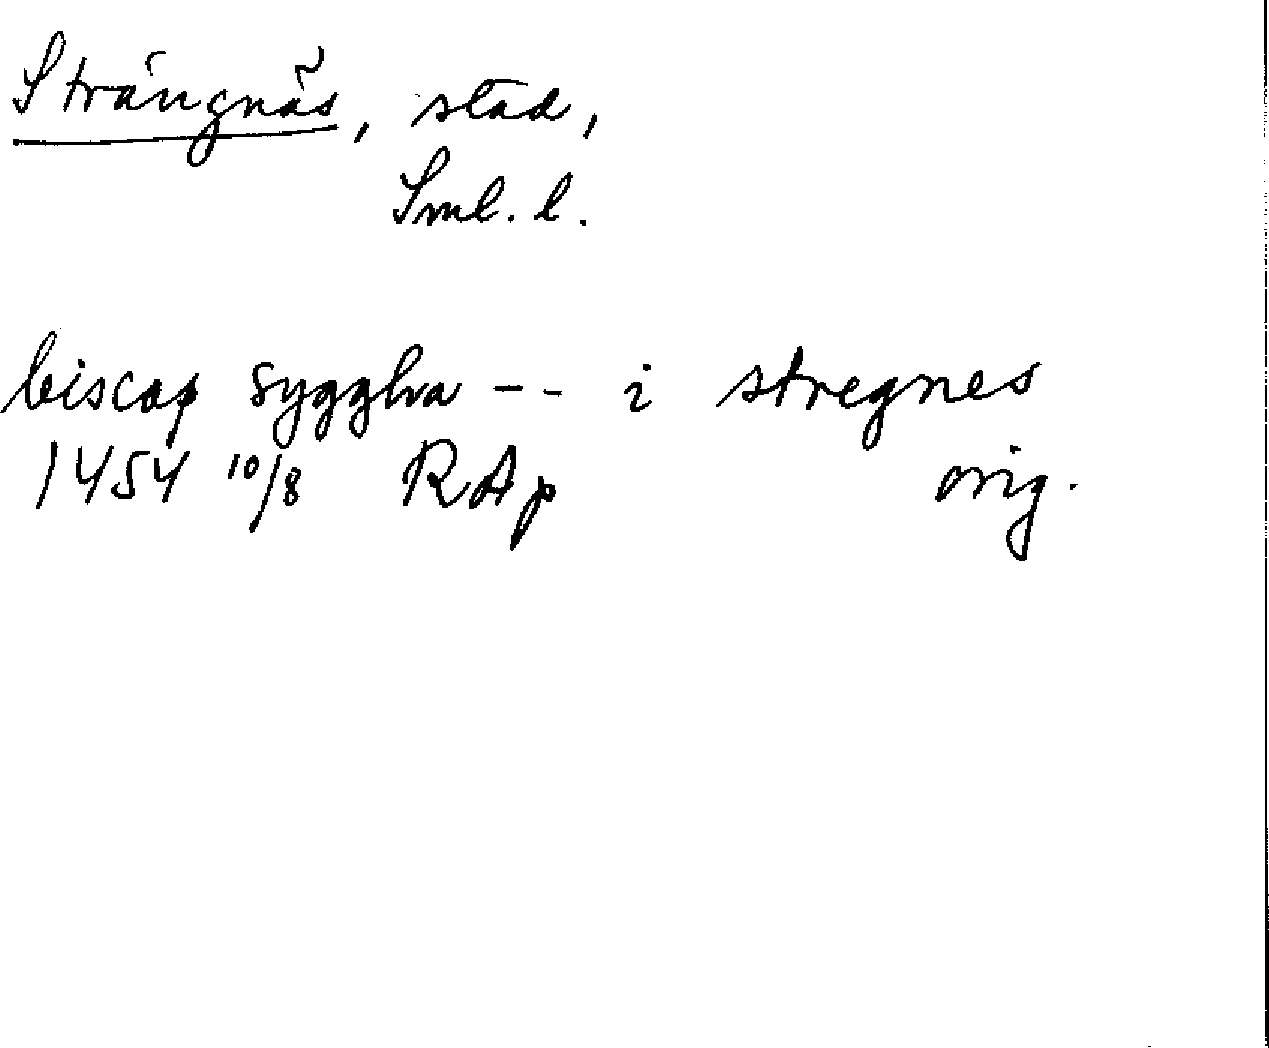 Strängnäs, stad,
Sml. l.
biscop syggha -- i stregnes
1454 10/8 RAp orig.